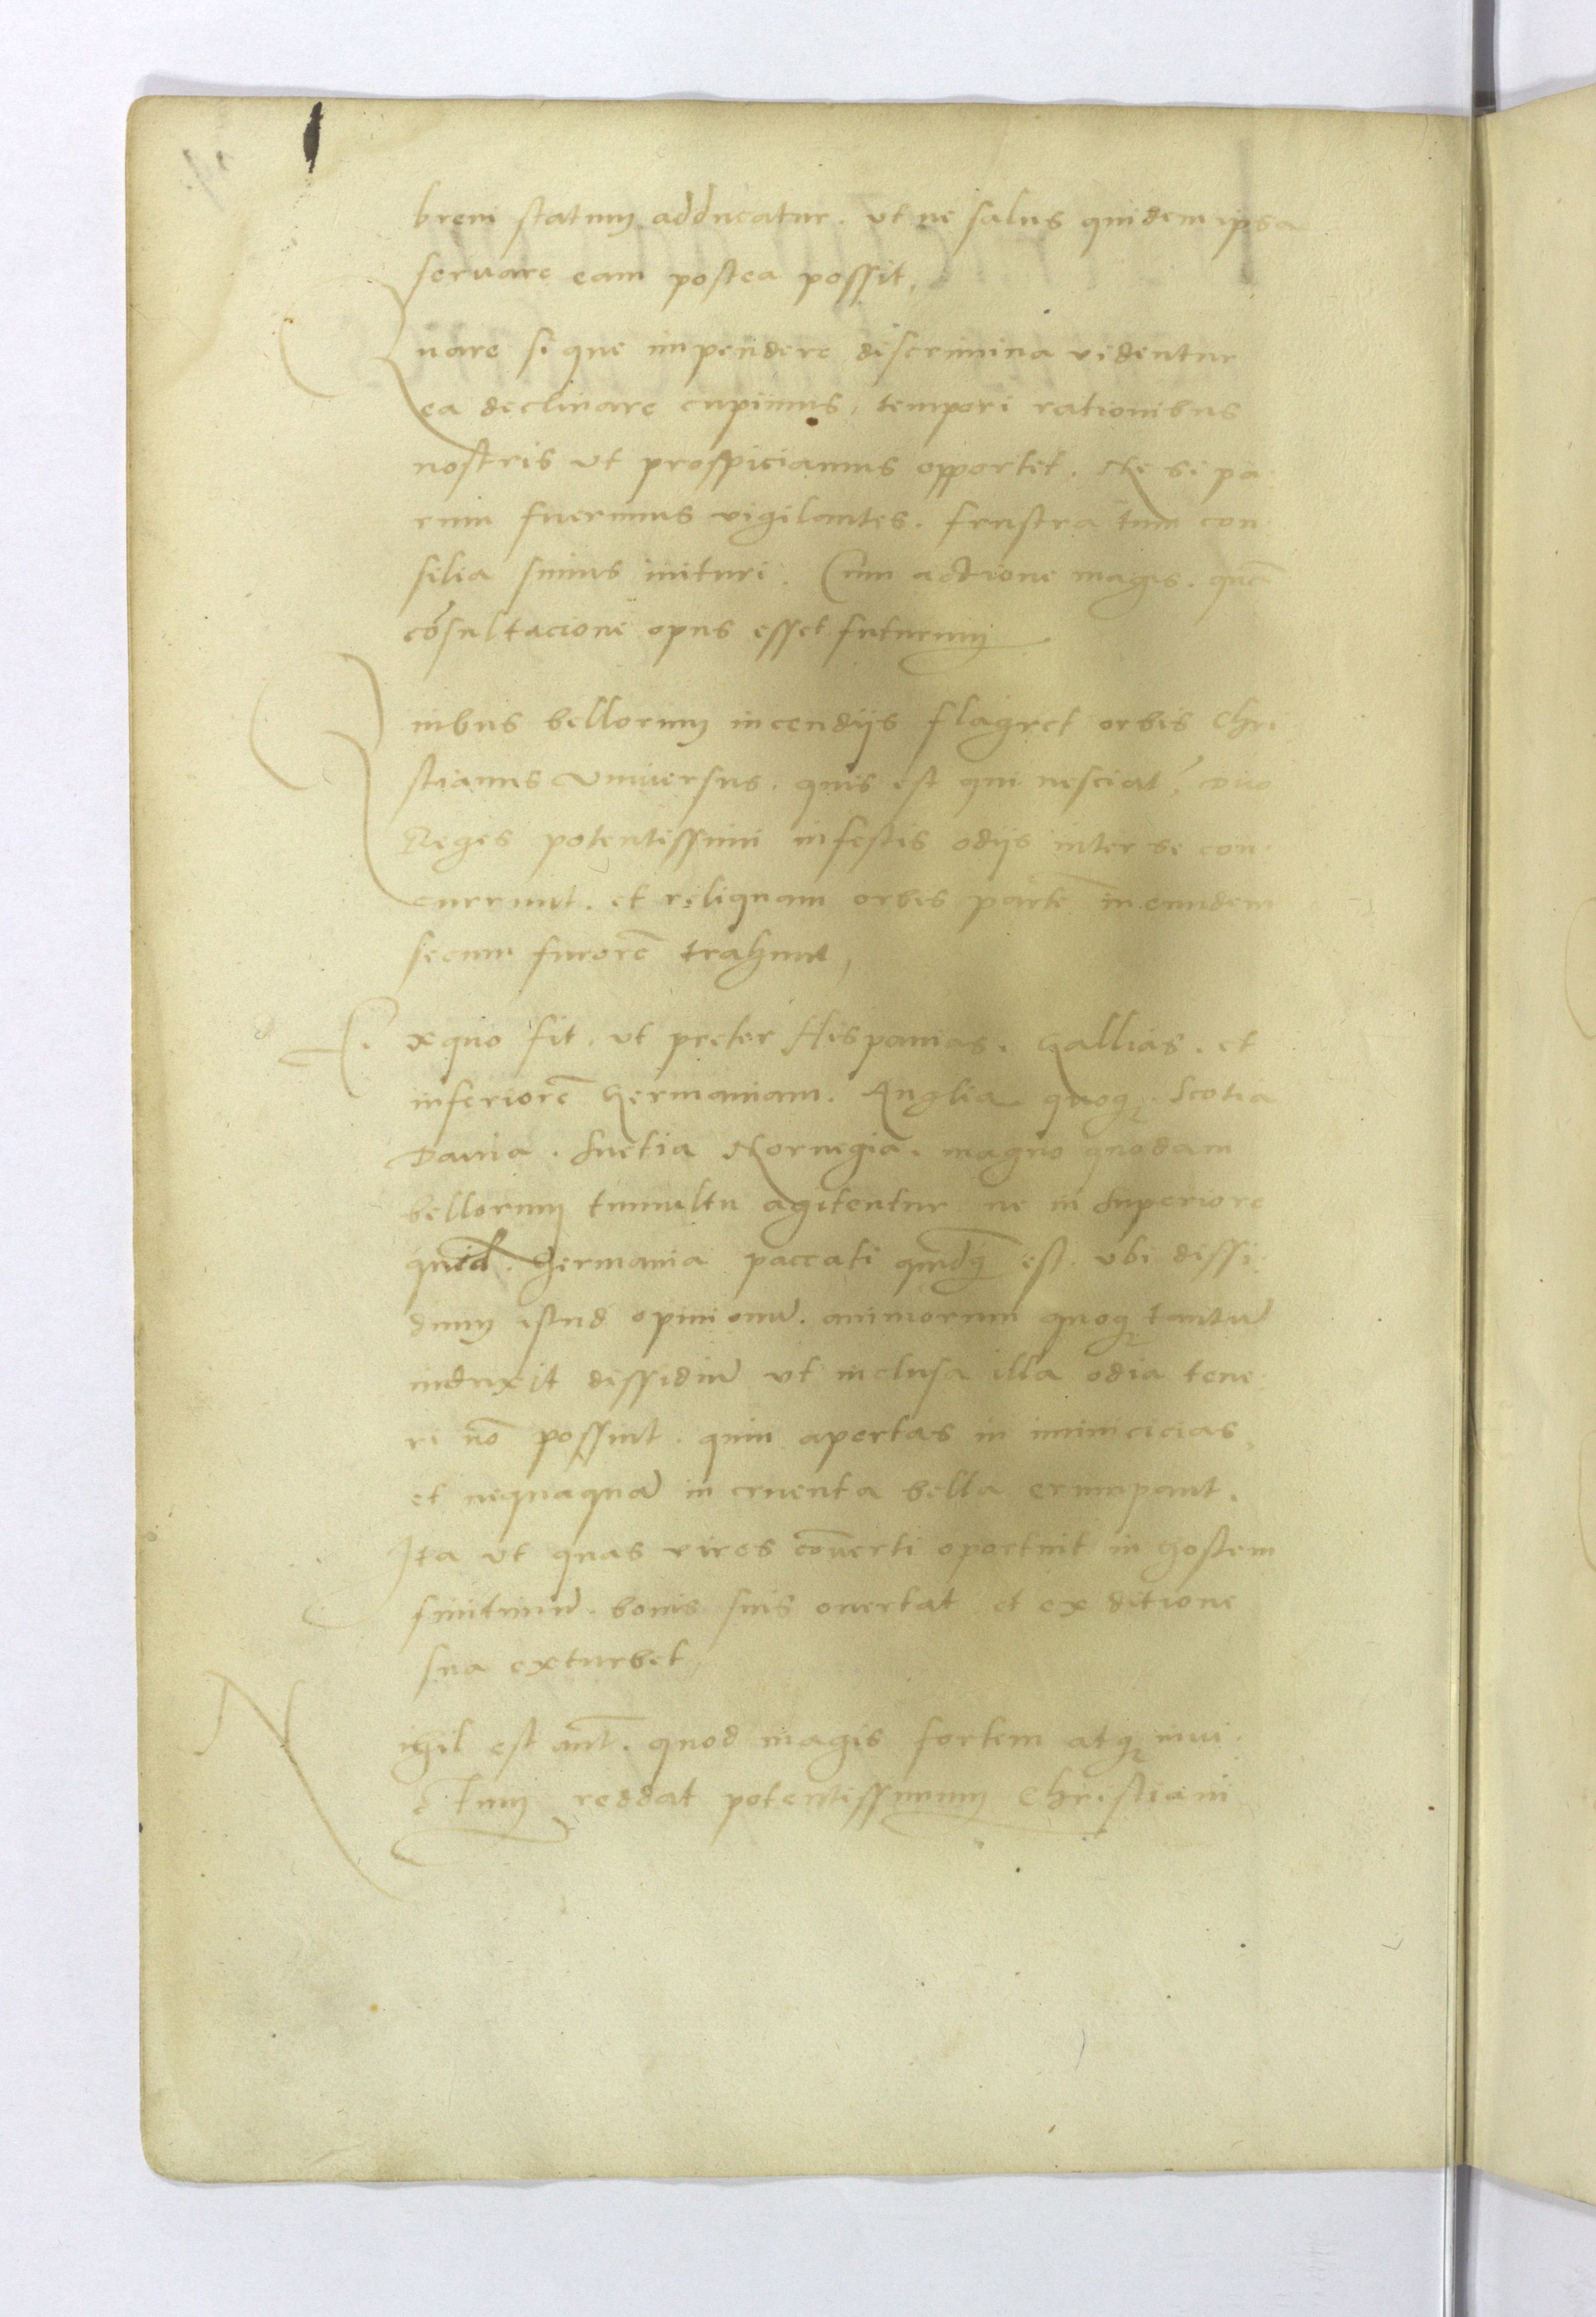 brem statum adducatur. ut ne salus quidem ipsa
seruare eam postea possit,
Quare si que impendere discrimina videntur
ea declinare cupimus, tempori rationibus
nostris ut prospiciamus opportet. Ne si pa
rum fuerimus vigilantes. frustra tum con
silia simus inituri. Cum actione magis. quã
cõsultacione opus esset futurum
Quibus bellorum incendijs flagret orbis Chri
stianus Universus. quis est qui nesciat? Duo
Reges potentissimi infestis odijs inter se con
currunt. et reliquam orbis partẽ in eundem
secum furorẽ trahunt,
Ex quo fit. ut preter Hispanias. Gallias. et
inferiorẽ Germaniam. Anglia quoqꝫ. Scotia
Dania. Suetia Noruegia. magno quodam
bellorum tumultu agitentur ne in superiore
quid. Germania paccati quidqꝫ est. ubi dissi
dium istud opinionũ. animorum quoqꝫ tantũ
induxit dissidiũ ut inclusa illa odia tene
ri nõ possint. quin apertas in inimicicias,
et nequaquã in cruenta bella erumpant.
Ita ut quas vires cõuerti oportuit in hostem
finitimũ. bonis suis euertat et ex ditione
sua exturbet,
Nihil est aut̃. quod magis fortem atqꝫ inui
ctum reddat potentissimum Christiani